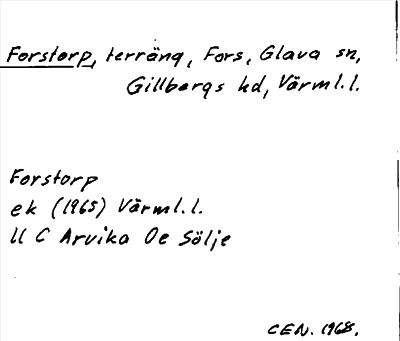 Forstorp, terräng, Fors, Glava sn,
Gillbergs hd, Värml. l.
Forstorp
ek (1965) Värml. l.
11 C Arvika 0e Sölje
CEN. 1968.